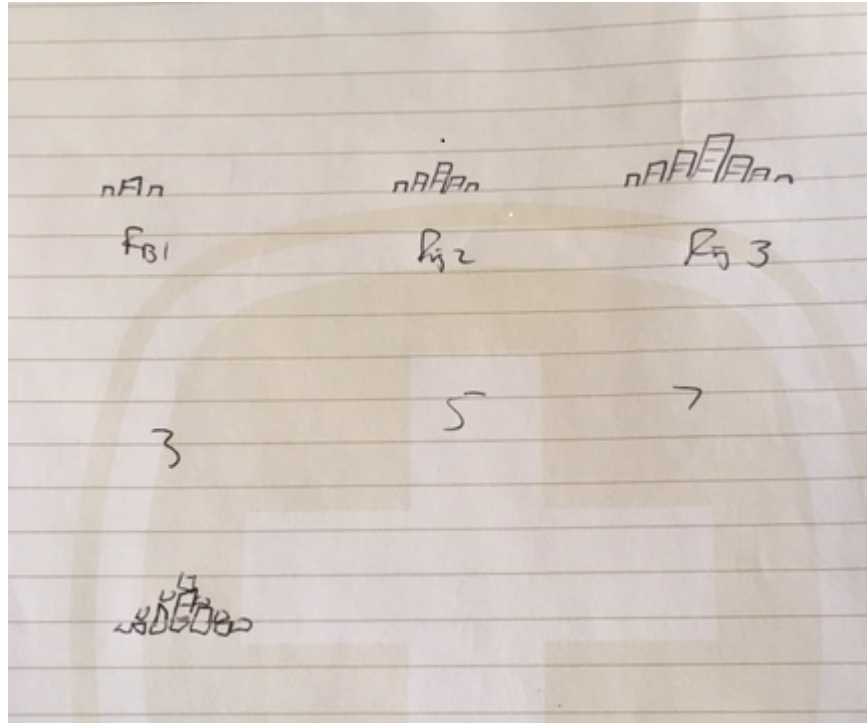 Fig 1 Fig 2 Fig 3
3 5 7